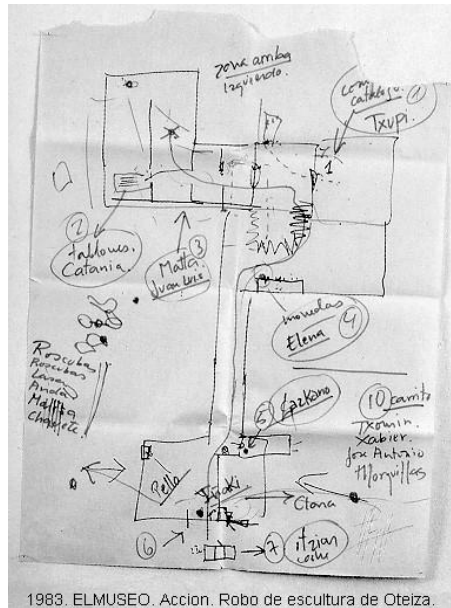 zona arriba
izquierda.
com
catalogo. 1
Txupi
1
2
tablones.
Catania.
Matta 3
Juan Luis
monedas
Elena 4
Roscubas
Roscubas
Anda
Matta
5
10 carrito
Txomin.
Xabier.
Jose Antonio
Morquillas
Pella
Iñaki
Clana
6
7 itzian
1983. ELMUSEO. Accion. Robo de escultura de Oteiza.